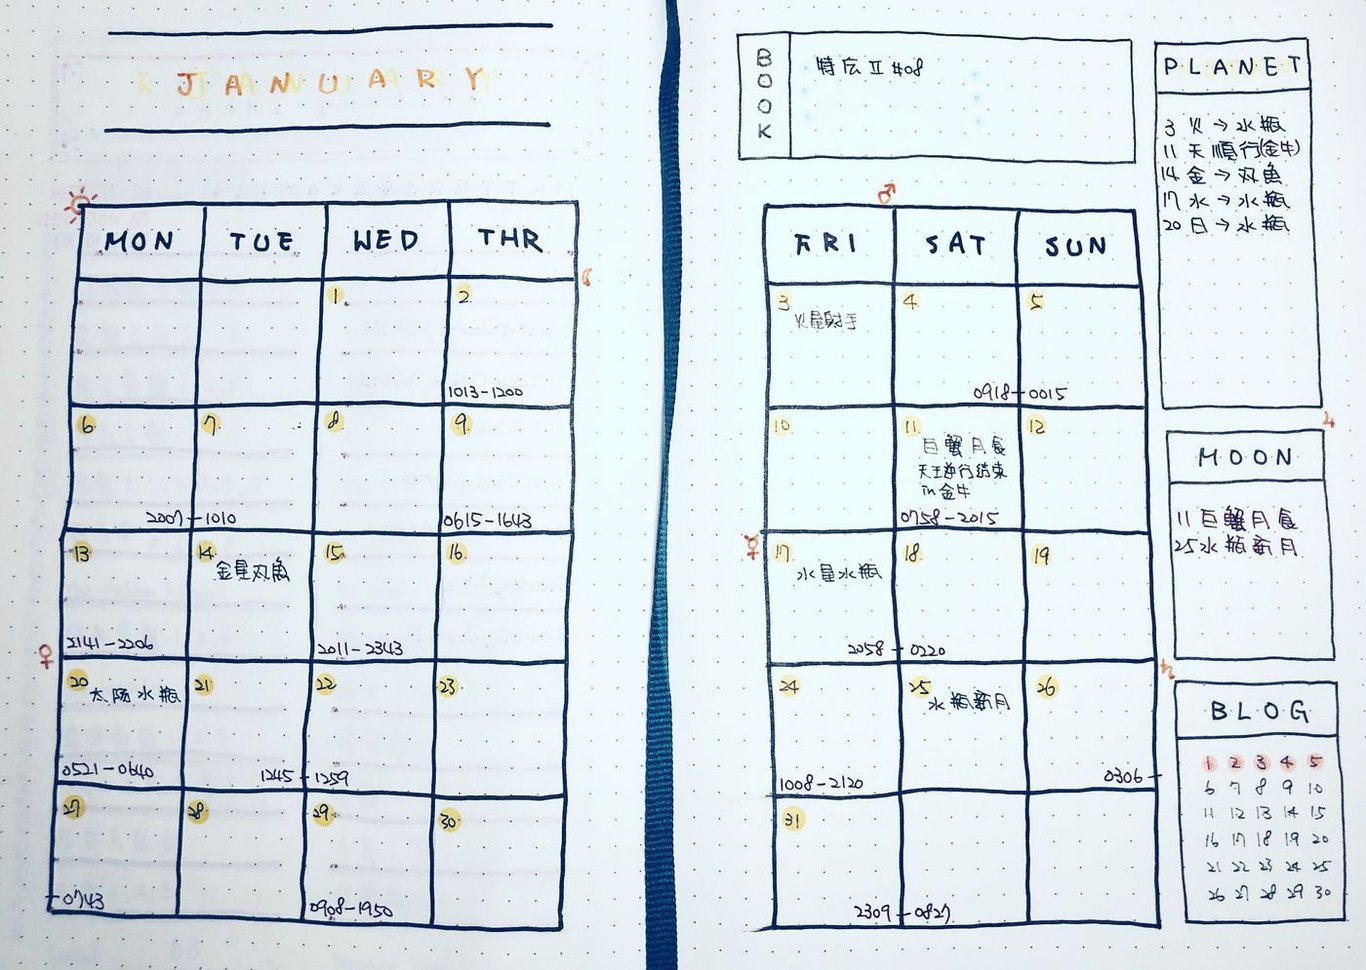 JANUARY
MON TUE WED THR
1 2
1013-1200
6 7 8 9
2007-1010
0615-1643
13 14 15 16
金星双魚
2141-2206
2011-2343
20 21 22 23
太陽水瓶
0521-0640
1245-1259
27 28 29 30
-0743
0908-1950
BOOK
特伝 II #08
FRI SAT SUN
3 4 5
火星射手
0918-0015
10 11 12
巨蟹月食
天王逆行结束
in 金牛
0758-2015
17 18 19
水星水瓶
2058-0220
24 25 26
水瓶新月
1008-2120
0306-
31
2309-0827
PLANET
3 火→水瓶
11 天順行(金牛)
14 金→双魚
17 水→水瓶
20 日→水瓶
MOON
11 巨蟹月食
25 水瓶新月
BLOG
1 2 3 4 5
6 7 8 9 10
11 12 13 14 15
16 17 18 19 20
21 22 23 24 25
26 27 28 29 30